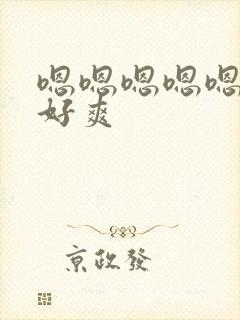 嗯嗯嗯嗯嗯
好爽
京政發